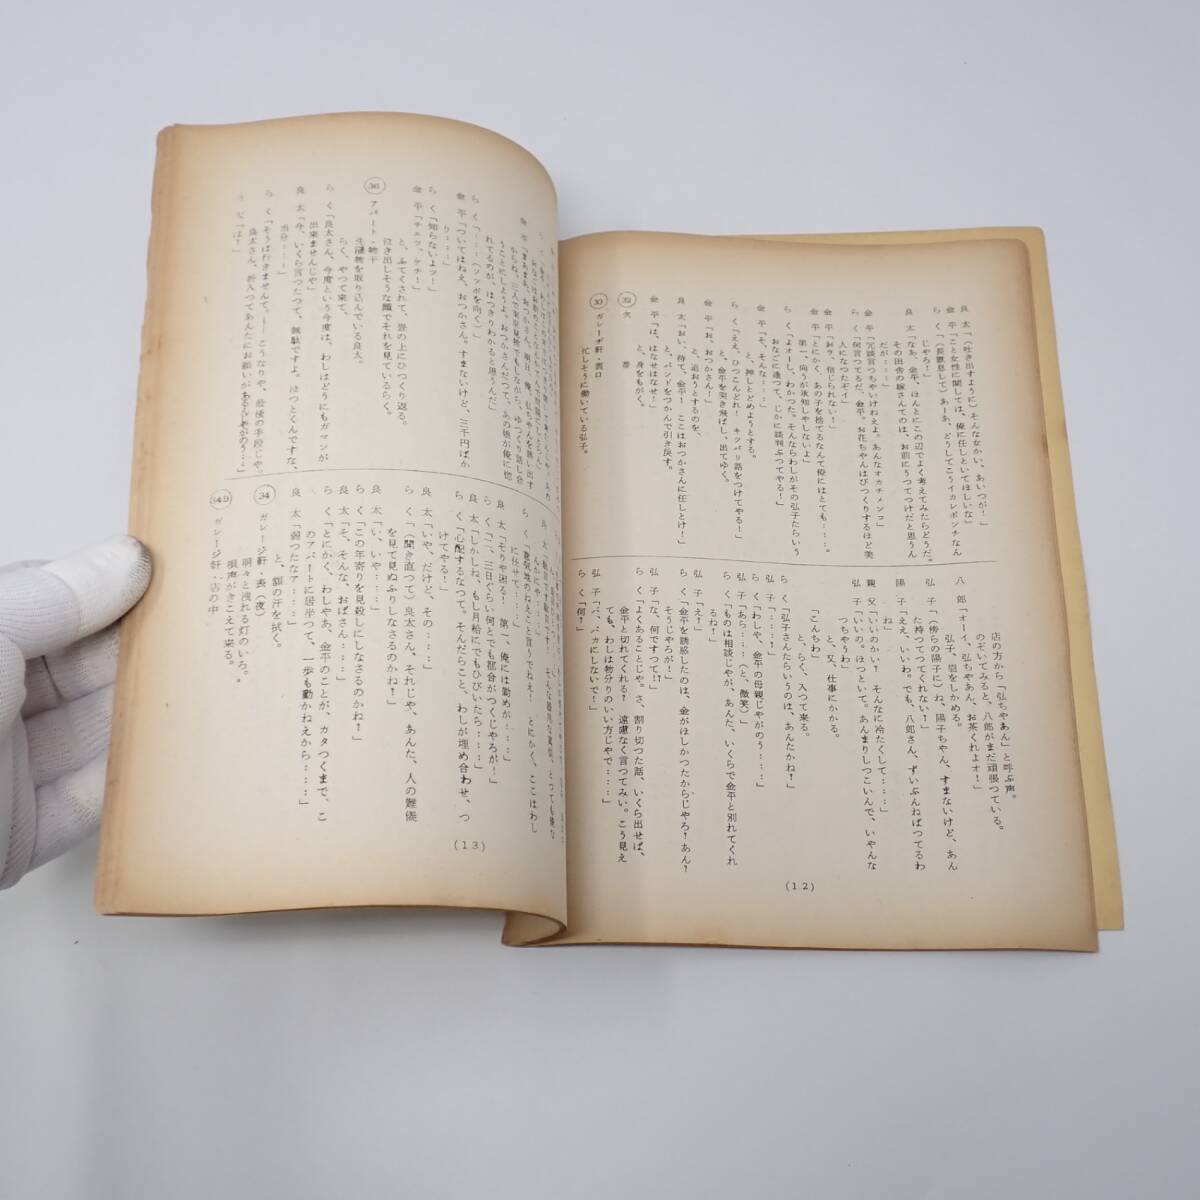 良　太「（吐き出すように）そんな女かい、あいつが！」
らく「（長嘆息して）あーあ、どうしてこうイカレポンチなん
じやろ！」
良　太「なあ、金平、ほんとにこの辺でよく考えてみたらどうだ。
その田舎の嫁さんてのは、お前にうつてつけだと思うん
だが……」
金平「冗談言つちやいけねえよ。あんなオカチメンコ」
らく「何言つてるだ、金平。お花ちやんはびつくりするほど美
人になつたぞイ」
金平「とにかく、あの子を捨てるなんて俺にはとても……。
第一、向うが承知しやしないよ」
らく「よオーし、わかつた。そんならわしがその弘子たらいう
おなごに逢つて、じかに談判ぶつてやる！」
金　平「そ、そんな……」
と、押しとどめようとする。
らく「ええ、ひつこんどれ！　キッパリ話をつけてやる！」
と、金平を突き飛ばし、出てゆく。
金　平「お、おつかさん！」
と、追おうとするのを、
良　太「おい、待て、金平！　ここはおつかさんに任しとけ！」
と、バンドをつかんで引き戻す。
金　平「は、はなせはなせ！」
と、身をもがく。
㉜　欠　番
㉝　ガレーヂ軒・裏口
忙しそうに働いている弘子。
店の方から「弘ちやあん」と呼ぶ声。
のぞいてみると、八郎がまだ頑張つている。
八　郎「オーイ、弘ちやあん、お茶くれよオ！」
弘子、眉をしかめる。
弘　子「（傍らの陽子に）ね、陽子ちやん、すまないけど、あん
た持つてつてくれない！」
陽　子「ええ、いいわ。でも、八郎さん、ずいぶんねばつてるわ
ね」
親　父「いいのかい！　そんなに冷たくして……」
弘　子「いいの。ほつといて。あんまりしつこいんで、いやんな
つちやうわ」
と、又、仕事にかかる。
「こんちわ」
と、らく、入つて来る。
らく「弘子さんたらいうのは、あんたかね！」
弘　子「……！」
らく「わしや、金平の母親じやがのう……」
弘　子「あら……（と、微笑）」
らく「ものは相談じやが、あんた、いくらで金平と別れてくれ
るね！」
弘　子「え！」
らく「金平を誘惑したのは、金がほしかつたからじやろ！あん！
そうじやろが！」
弘　子「な、何ですつて!?」
らく「よくあることじや。さ、割り切つた話、いくら出せば、
金平と切れてくれる？　遠慮なく言つてみい。こう見え
ても、わしは物分りのいい方じやで……」
弘　子「バ、バカにしないで！」
らく「何！」
（12）
金　平「まあまあ、おつかさん。明日、俺、弘ちやんを誘い出す
からね。三人で東京見物でもしながら、ゆつくり話し合
うことにしようよ。おつかさんだつて、あの娘が俺に惚
れてるのが、はつきりわかると思うんだ」
らく「……（ソッポを向く）」
金　平「ついてはねえ、おつかさん。すまないけど、三千円ばか
り……」
らく「知らないよッ！」
金　平「チェッ、ケチ！」
と、ふてくされて、畳の上にひつくり返る。
泣き出しそうな顔でそれを見ているらく。
㊱　アパート・物干
洗濯物を取り込んでいる良太。
らく、やつて来て、
らく「良太さん、今度という今度は、わしはどうにもガマンが
出来ませんじや」
良　太「今、いくら言つたつて、無駄ですよ。ほつとくんですな、
当分……」
らく「そうは行きませんて。――こうなりや、最後の手段じや。
良太さん、折入つてあんたにお願いがあるんじやがのう……」
良　太「は！」
らく「意気地のねえこと言うでねえ！　とにかく、ここはわし
に任せて……」
良　太「そりや困る！　第一、俺には勤めが……」
らく「二、三日ぐらい何とでも都合がつくじやろが！」
良　太「しかしね、もし月給にでもひびいたら……」
らく「心配するなつて。そんだらこと、わしが埋め合わせ、つ
けてやる！」
良　太「いや、だけど、その……」
らく「（開き直つて）良太さん、それじや、あんた、人の難儀
を見て見ぬふりしなさるのかね！」
良　太「い、いや……」
らく「この年寄りを見殺しにしなさるのかね！」
良　太「そ、そんな、おばさん……」
らく「とにかく、わしやあ、金平のことが、カタつくまで、こ
のアパートに居坐つて、一歩も動かねえから……」
良　太「弱つたなア……」
と、額の汗を拭く。
㉞　ガレージ軒・表（夜）
明々と洩れる灯のいろ。
唄声がきこえて来る。
㉞B　ガレージ軒・店の中
（13）